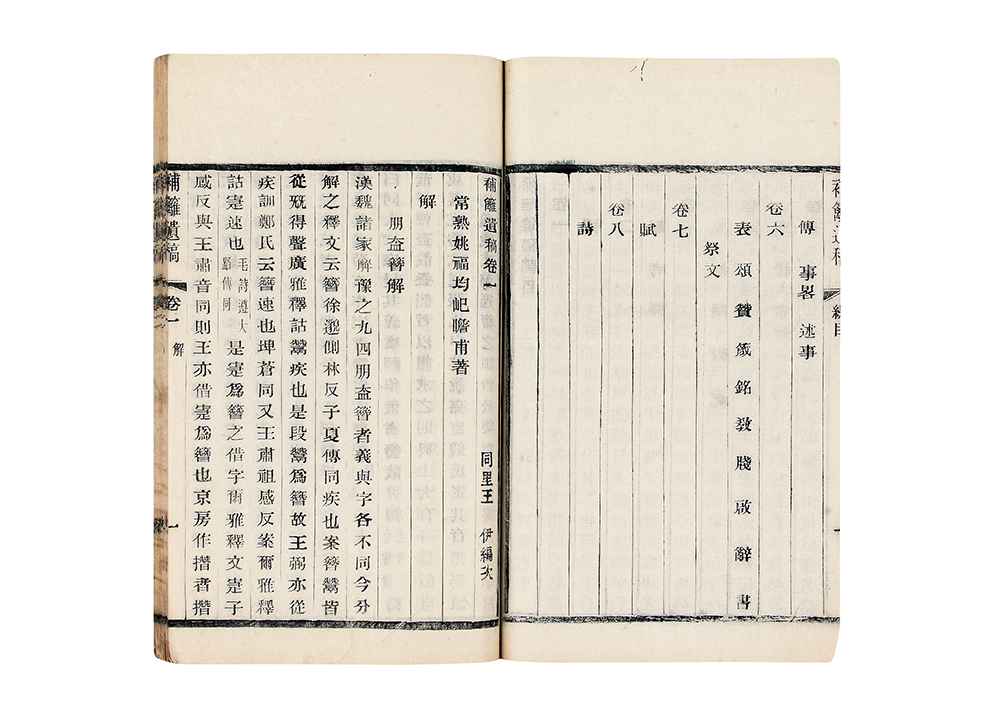 補籬遺稿
總目
傳 事畧 述事
卷六
表 頌 贊 箴 銘 敎 牋 啟 辭 書
祭文
卷七
賦
卷八
詩
一
補籬遺稿卷一
常熟姚福均屺瞻甫著 同里王 伊編次
解
朋盍簪解
漢魏諸家解豫之九四朋盍簪者義與字各不同今分
解之釋文云簪徐邈側林反子夏傳同疾也案簪鬵皆
從旡得聲廣雅釋詁鬵疾也是段鬵爲簪故王弼亦從
疾訓鄭氏云簪速也埤蒼同又王肅祖感反案爾雅釋
詁寁速也毛詩遵大路傳同是寁爲簪之借字爾雅釋文寁子
感反與王肅音同則王亦借寁爲簪也京房作撍者撍
補籬遺稿
卷一
解
一